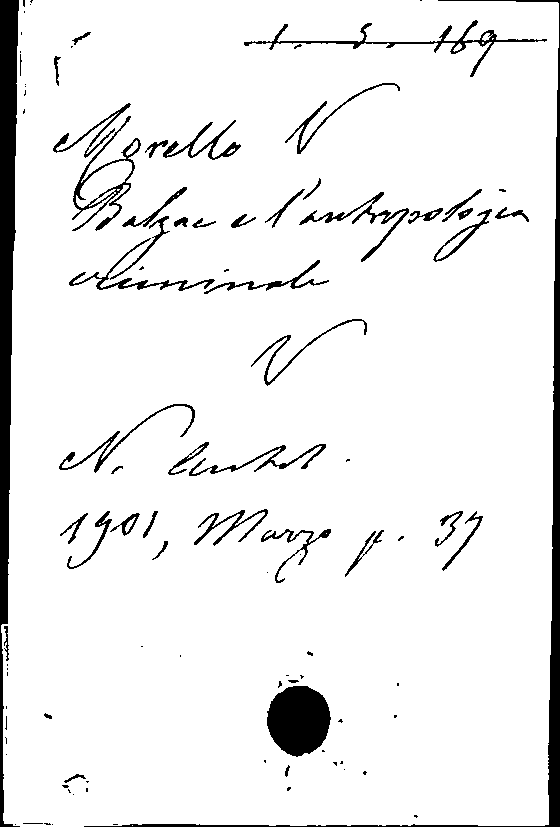 1. 5. 169
Morello V
Balzac e l'antropologia
criminale
V
N. Antol.
1901, Marzo p. 37